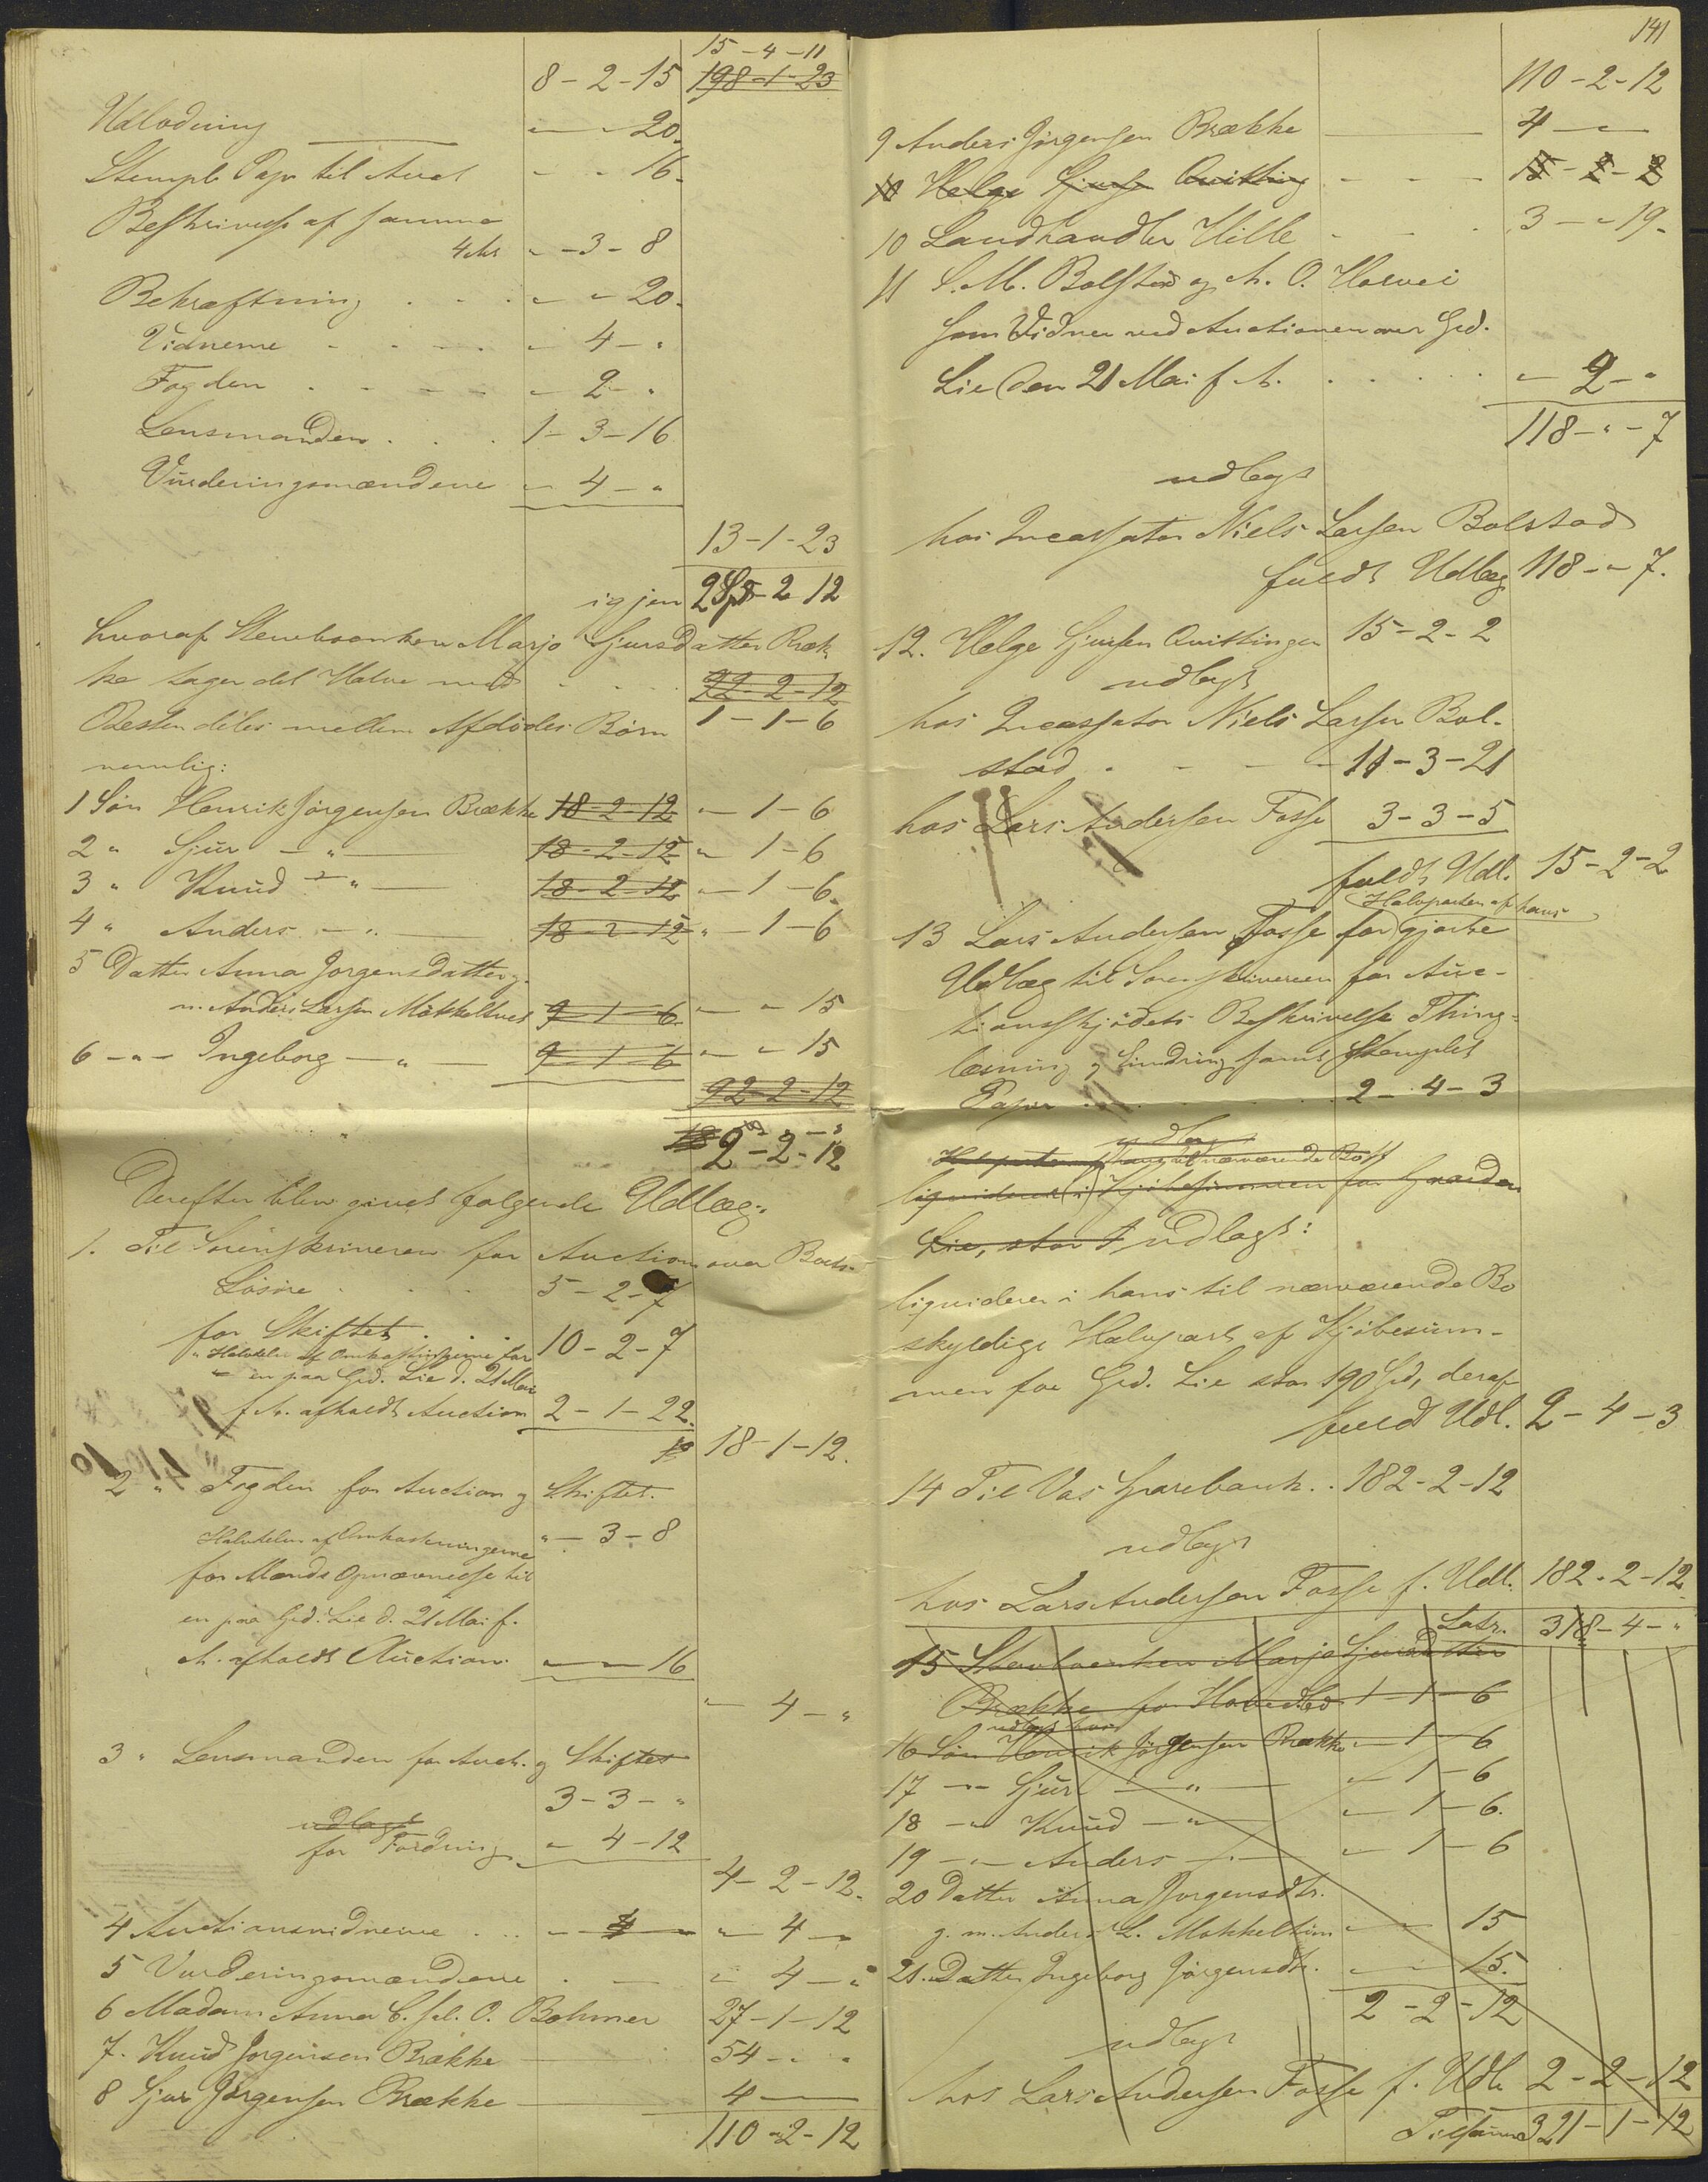 15 - 4 - 11
8 - 2 - 15 198 - 1 - 23
Udlodning " - " 20.
Stempl. Papr til Auct " - " 16.
Beskrivelse af samme
4 Ark " - 3 - 8
Bekræftning . . . " - " 20.
Vidnerne . . . . " 4 - "
Fogden . . . . " 2 - "
Lensmanden . . . 1 - 3 - 16
Vurderingsmændene " 4 - "
13 - 1 - 23
igjen 2 Spd - 2 - 12
hvoraf Stervboenken Marja Sjursdatter Bræk
ke tager det Halve med . . . 92 - 2 - 12
1 - 1 - 6
Resten deles mellem Afdødes Børn
nemlig:
1 Søn Henrik Jørgensen Brække 18 - 2 - 12 " - 1 - 6
2 " Sjur - " - 18 - 2 - 12 " 1 - 6
3 " Knud - " - 18 - 2 - 12 " - 1 - 6.
4 " Anders - " - 18 - 2 - 12 " - 1 - 6
5 Datter Anna Jørgensdatter g.
m. Anders Larsen Møkkeltvet 9 - 1 - 6. " - " 15
6 - " - Ingeborg - " - 9 - 1 - 6 " - " 15
92 - 2 - 12
2 - 2 - 12
Derefter blev givet følgende Udlæg:
1. Til Sorenskriveren for Auction over Boets
Løsøre . . . 5 - 2 - 7
for Skiftet . . . 10 - 2 - 7
" Halvdelen af Omkostningerne for
en paa Grd. Lie d. 21 Mai
f. A. afholdt Auction 2 - 1 - 22.
18 - 1 - 12.
2 " Fogden for Auction og Skiftet.
" - 3 - 8
Halvdelen af Omkostningerne
for Mænds Opnævnelse til
en paa Grd. Lie d. 21 Mai f.
A. afholdt Auction " - " 16
" 4 - "
3 " Lensmanden for Auct. og Skiftet
3 - 3 - "
udlagt
for Fordring " 4 - 12
4 - 2 - 12.
4 Auctionsvidnerne . . - 4 - " - 4 - "
5 Vurderingsmændene . - " 4 - "
6 Madam Anna C. sal. O. Bøhmer 27 - 1 - 12
7. Knud Jørgensen Brække 54 - " "
8 Sjur Jørgensen Brække 4 -
110 - 2 - 12
141
110 - 2 - 12
9 Anders Jørgensen Brække 4 - "
10 Helge Sjursen Qvitting . . . 15 - 2 - 2
10 Landhandler Hille . . . 3 - " 19.
11 S. M. Bolstad og A. O. Horvei
som Vidner ved Auctionen over Grd.
Lie den 21 Mai f. A. . . . . " 2 - "
118 - " - 7
udlagt
hos Incassator Niels Larsen Bolstad
fuldt Udlæg 118 - " 7.
12. Helge Sjursen Qvittingen 15 - 2 - 2
udlagt
hos Incassator Niels Larsen Bol-
stad . . . . 11 - 3 - 21
hos Lars Andersen Fosse 3 - 3 - 5
fuldt Udl. 15 - 2 - 2
Halvparten af hans
13 Lars Andersen Fosse for gjorte
Udlæg til Sorenskriveren for Auc-
tionsskjødets Beskrivelse Thing-
læsning og samt Stemplet
Papir . . . . 2 - 4 - 3
udlagt
hans til nærværende Bo
liquiderer i Kjøbesummen for Gaarden
Lie, stor udlagt:
liquiderer i hans til nærværende Bo
skyldige Halvpart af Kjøbesum-
men for Grd. Lie stor 190 Spd, deraf
fuldt Udl. 2 - 4 - 3
14 Til Vos Sparebank . . 182 - 2 - 12
udlagt
hos Lars Andersen Fosse f. Udl. 182 - 2 - 12
Latr. 318 - 4 - "
15 Stervboenken Marja Sjursdatter
Brække for Hovedlod 1 - 1 - 6
16 Søn Henrik Jørgensen Brække " - 1 - 6
17 - " - Sjur - " - " 1 - 6
18 - " Knud - " - " 1 - 6.
19 - " - Anders - " - " 1 - 6
20 Datter Anna Jørgensdtr.
g. m. Anders L. Møkkeltvin " - " 15
21. Datter Ingeborg Jørgensdtr. " - " 15.
2 - 2 - 12
udlagt
hos Lars Andersen Fosse f. Udl. 2 - 2 - 12
Tilsammen 321 - 1 - 12